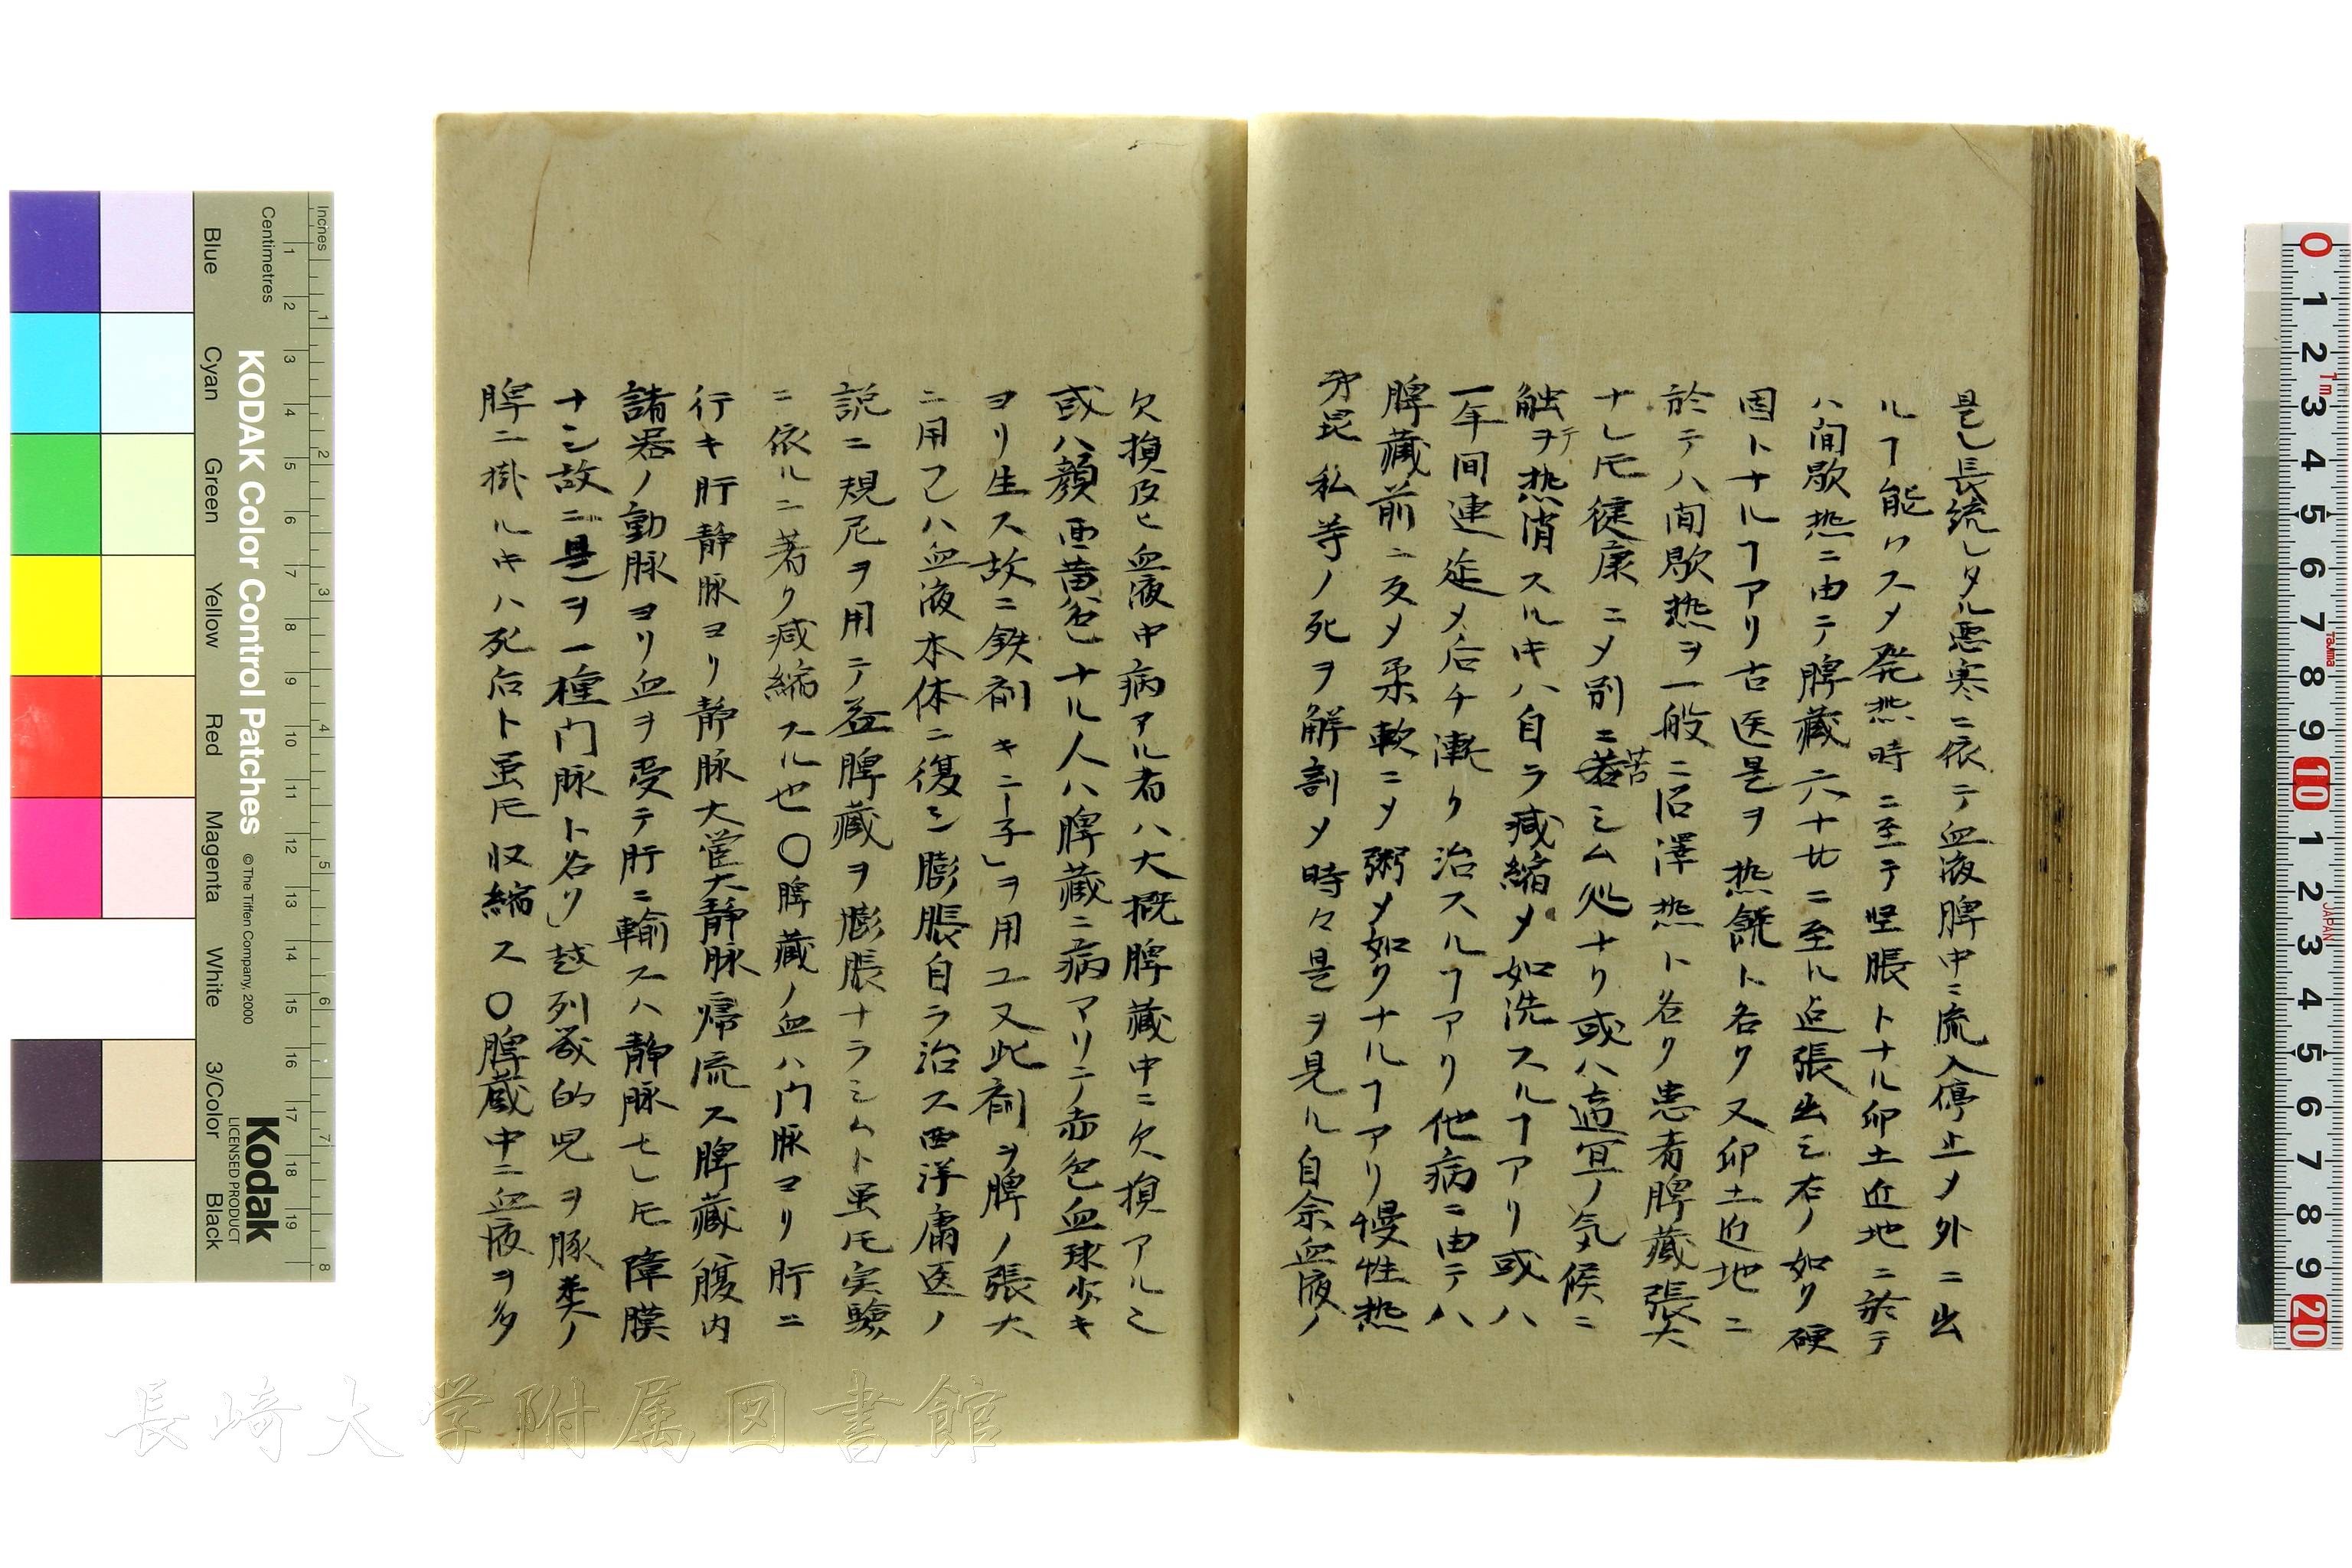 是レ長続レタル悪寒ニ依テ血液脾中ニ流入停止メ外ニ出
ルヿ能ハスメ発熱時ニ至テ堅脹トナル卯土近地ニ於テ
ハ間歇熱ニ由テ脾蔵六十廿ニ至ル迠張出シ右ノ如ク硬
固トナルヿアリ古医是ヲ熱餅ト名ク又卯土近地ニ
於テハ間歇熱ヲ一般ニ沼澤熱ト名ク患者脾蔵張大
ナレ𪜈健康ニメ別ニ苦シム処ナリ或ハ適冝ノ気候ニ
触ヲテ熱消スルキハ自ラ減縮メ如洗スルヿアリ或ハ
一年间連延メ后チ漸ク治スルヿアリ他病ニ由テハ
脾蔵前ニ反メ柔軟ニメ粥メ如クナルヿアリ慢性熱
弟昆私等ノ死ヲ解剖メ時々是ヲ見ル自余血液ノ
欠損及ヒ血液中病アル者ハ大概脾蔵中ニ欠損アルニ
或ハ顔面黄色ナル人ハ脾蔵ニ病マリテ赤色血球少キ
ヨリ生ス故ニ鉄剤キニー子」ヲ用ユ又此剤ヲ脾ノ張大
ニ用フハ血液本体ニ復シ膨脹自ラ治ス西洋庸医ノ
説ニ規尼ヲ用テ益脾蔵ヲ膨脹ナラシムト虽𪜈実験
ニ依ルニ著ク減縮スル也〇脾蔵ノ血ハ门脈ヨリ肝ニ
行キ肝静脈ヨリ静脈大管大静脉帰流ス脾蔵腹内
諸器ノ動脉ヨリ血ヲ受テ肝ニ輸スハ静脈モレ𪜈障膜
ナシ故ニ是ヲ一種门脈ト名ク」越列幾的児ヲ豚类ノ
脾ニ掛ルキハ死后ト虽𪜈収縮ス〇脾蔵中ニ血液ヲ多
長崎大学附属図書館
KODAK Color Control Patches
© The Tiffen Company, 2000
Kodak
LICENSED PRODUCT
Inches
Centimetres
Blue
Cyan
Green
Yellow
Red
Magenta
White
3/Color
Black
1 2 3 4 5 6 7 8 9 10 11 12 13 14 15 16 17 18 19
1 2 3 4 5 6 7 8
0 1 2 3 4 5 6 7 8 9 10 1 2 3 4 5 6 7 8 9 20
1m
Tajima
JAPAN